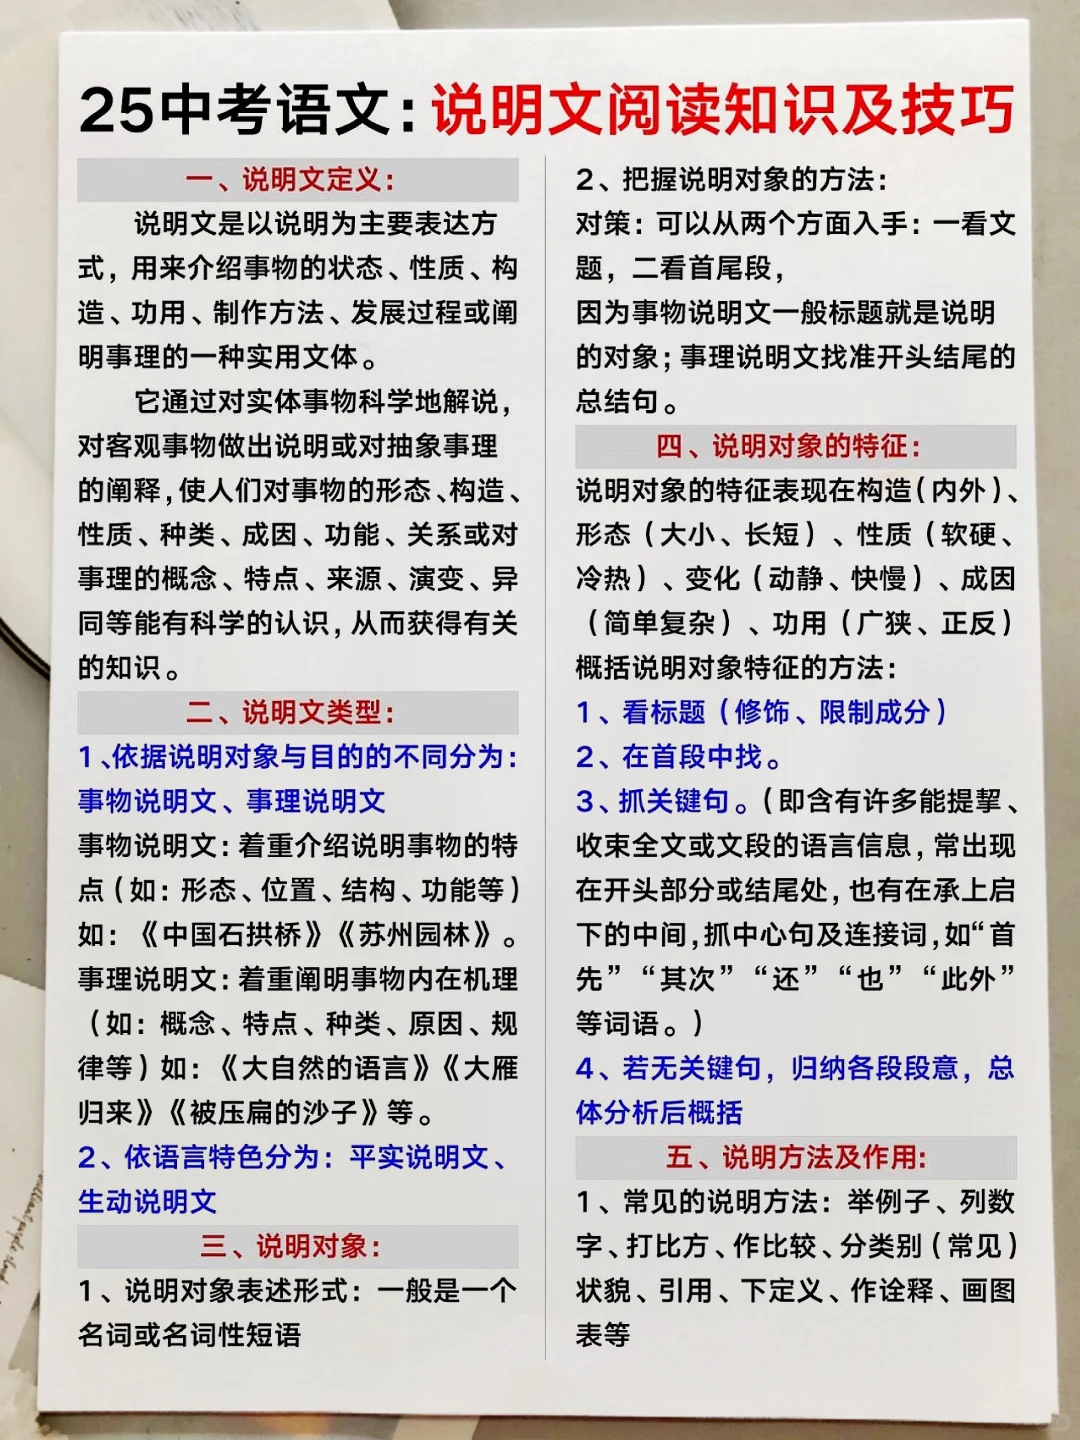 25中考语文：说明文阅读知识及技巧
一、说明文定义：
说明文是以说明为主要表达方
式，用来介绍事物的状态、性质、构
造、功用、制作方法、发展过程或阐
明事理的一种实用文体。
它通过对实体事物科学地解说，
对客观事物做出说明或对抽象事理
的阐释，使人们对事物的形态、构造、
性质、种类、成因、功能、关系或对
事理的概念、特点、来源、演变、异
同等能有科学的认识，从而获得有关
的知识。
二、说明文类型：
1、依据说明对象与目的的不同分为：
事物说明文、事理说明文
事物说明文：着重介绍说明事物的特
点（如：形态、位置、结构、功能等）
如：《中国石拱桥》《苏州园林》。
事理说明文：着重阐明事物内在机理
（如：概念、特点、种类、原因、规
律等）如：《大自然的语言》《大雁
归来》《被压扁的沙子》等。
2、依语言特色分为：平实说明文、
生动说明文
三、说明对象：
1、说明对象表述形式：一般是一个
名词或名词性短语
2、把握说明对象的方法：
对策：可以从两个方面入手：一看文
题，二看首尾段，
因为事物说明文一般标题就是说明
的对象；事理说明文找准开头结尾的
总结句。
四、说明对象的特征：
说明对象的特征表现在构造（内外）、
形态（大小、长短）、性质（软硬、
冷热）、变化（动静、快慢）、成因
（简单复杂）、功用（广狭、正反）
概括说明对象特征的方法：
1、看标题（修饰、限制成分）
2、在首段中找。
3、抓关键句。（即含有许多能提挈、
收束全文或文段的语言信息，常出现
在开头部分或结尾处，也有在承上启
下的中间，抓中心句及连接词，如“首
先”“其次”“还”“也”“此外”
等词语。）
4、若无关键句，归纳各段段意，总
体分析后概括
五、说明方法及作用：
1、常见的说明方法：举例子、列数
字、打比方、作比较、分类别（常见）
状貌、引用、下定义、作诠释、画图
表等